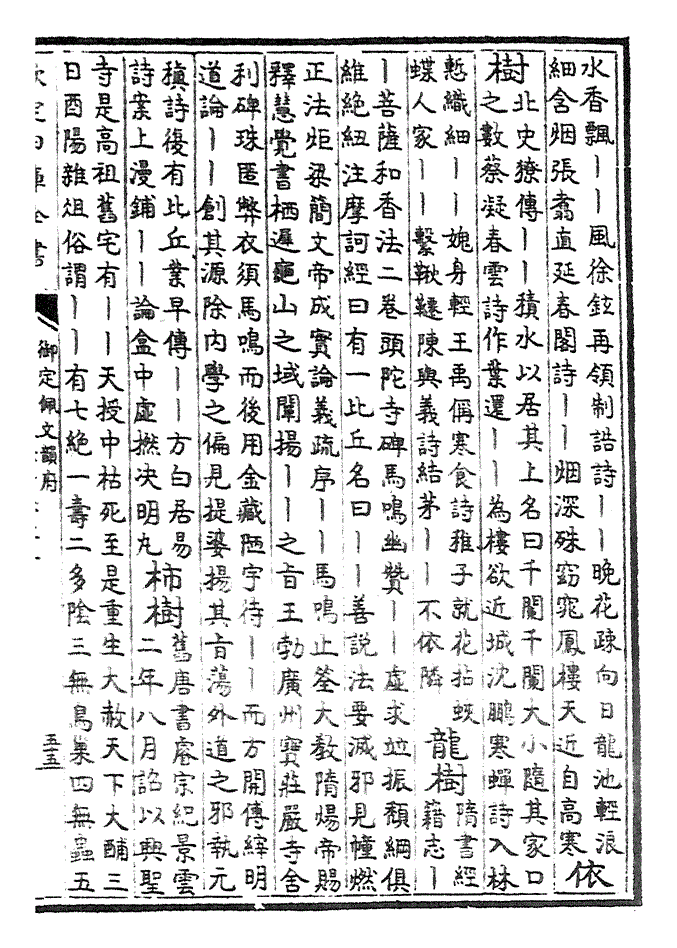 水香飄丨丨風徐鉉再領制誥詩丨丨晚花疎向日龍池輕浪
細含烟張翥直延春閣詩丨丨烟深殊窈窕鳳樓天近自高寒
依
樹
北史獠傳丨丨積水以居其上名曰千闌千闌大小隨其家口
之數蔡凝春雲詩作葉還丨丨為樓欲近城沈鵬寒蟬詩入林
慙織細丨丨媿身輕王禹偁寒食詩稚子就花拈蛺
蝶人家丨丨繫鞦韆陳與義詩結茅丨丨不依隣
龍樹
隋書經
籍志丨
丨菩薩和香法二卷頭陀寺碑馬鳴幽贊丨丨虛求竝振頹綱俱
維絕紐注摩訶經曰有一比丘名曰丨丨善說法要滅邪見幢燃
正法炬梁簡文帝成實論義疏序丨丨馬鳴止筌大教隋煬帝賜
釋慧覺書栖遲龜山之域闡揚丨丨之旨王勃廣州寶莊嚴寺舍
利碑珠匿弊衣須馬鳴而後用金藏陋宇待丨丨而方開傳縡明
道論丨丨創其源除内學之偏見提婆揚其旨蕩外道之邪執元
稹詩復有比丘業早傳丨丨方白居易
詩案上漫鋪丨丨論盒中虛撚決明丸
柿樹
舊唐書睿宗紀景雲
二年八月詔以興聖
寺是高祖舊宅有丨丨天授中枯死至是重生大赦天下大酺三
日酉陽雜俎俗謂丨丨有七絕一壽二多陰三無鳥巢四無蟲五
欽定四庫全書
御定佩文韻府
五五